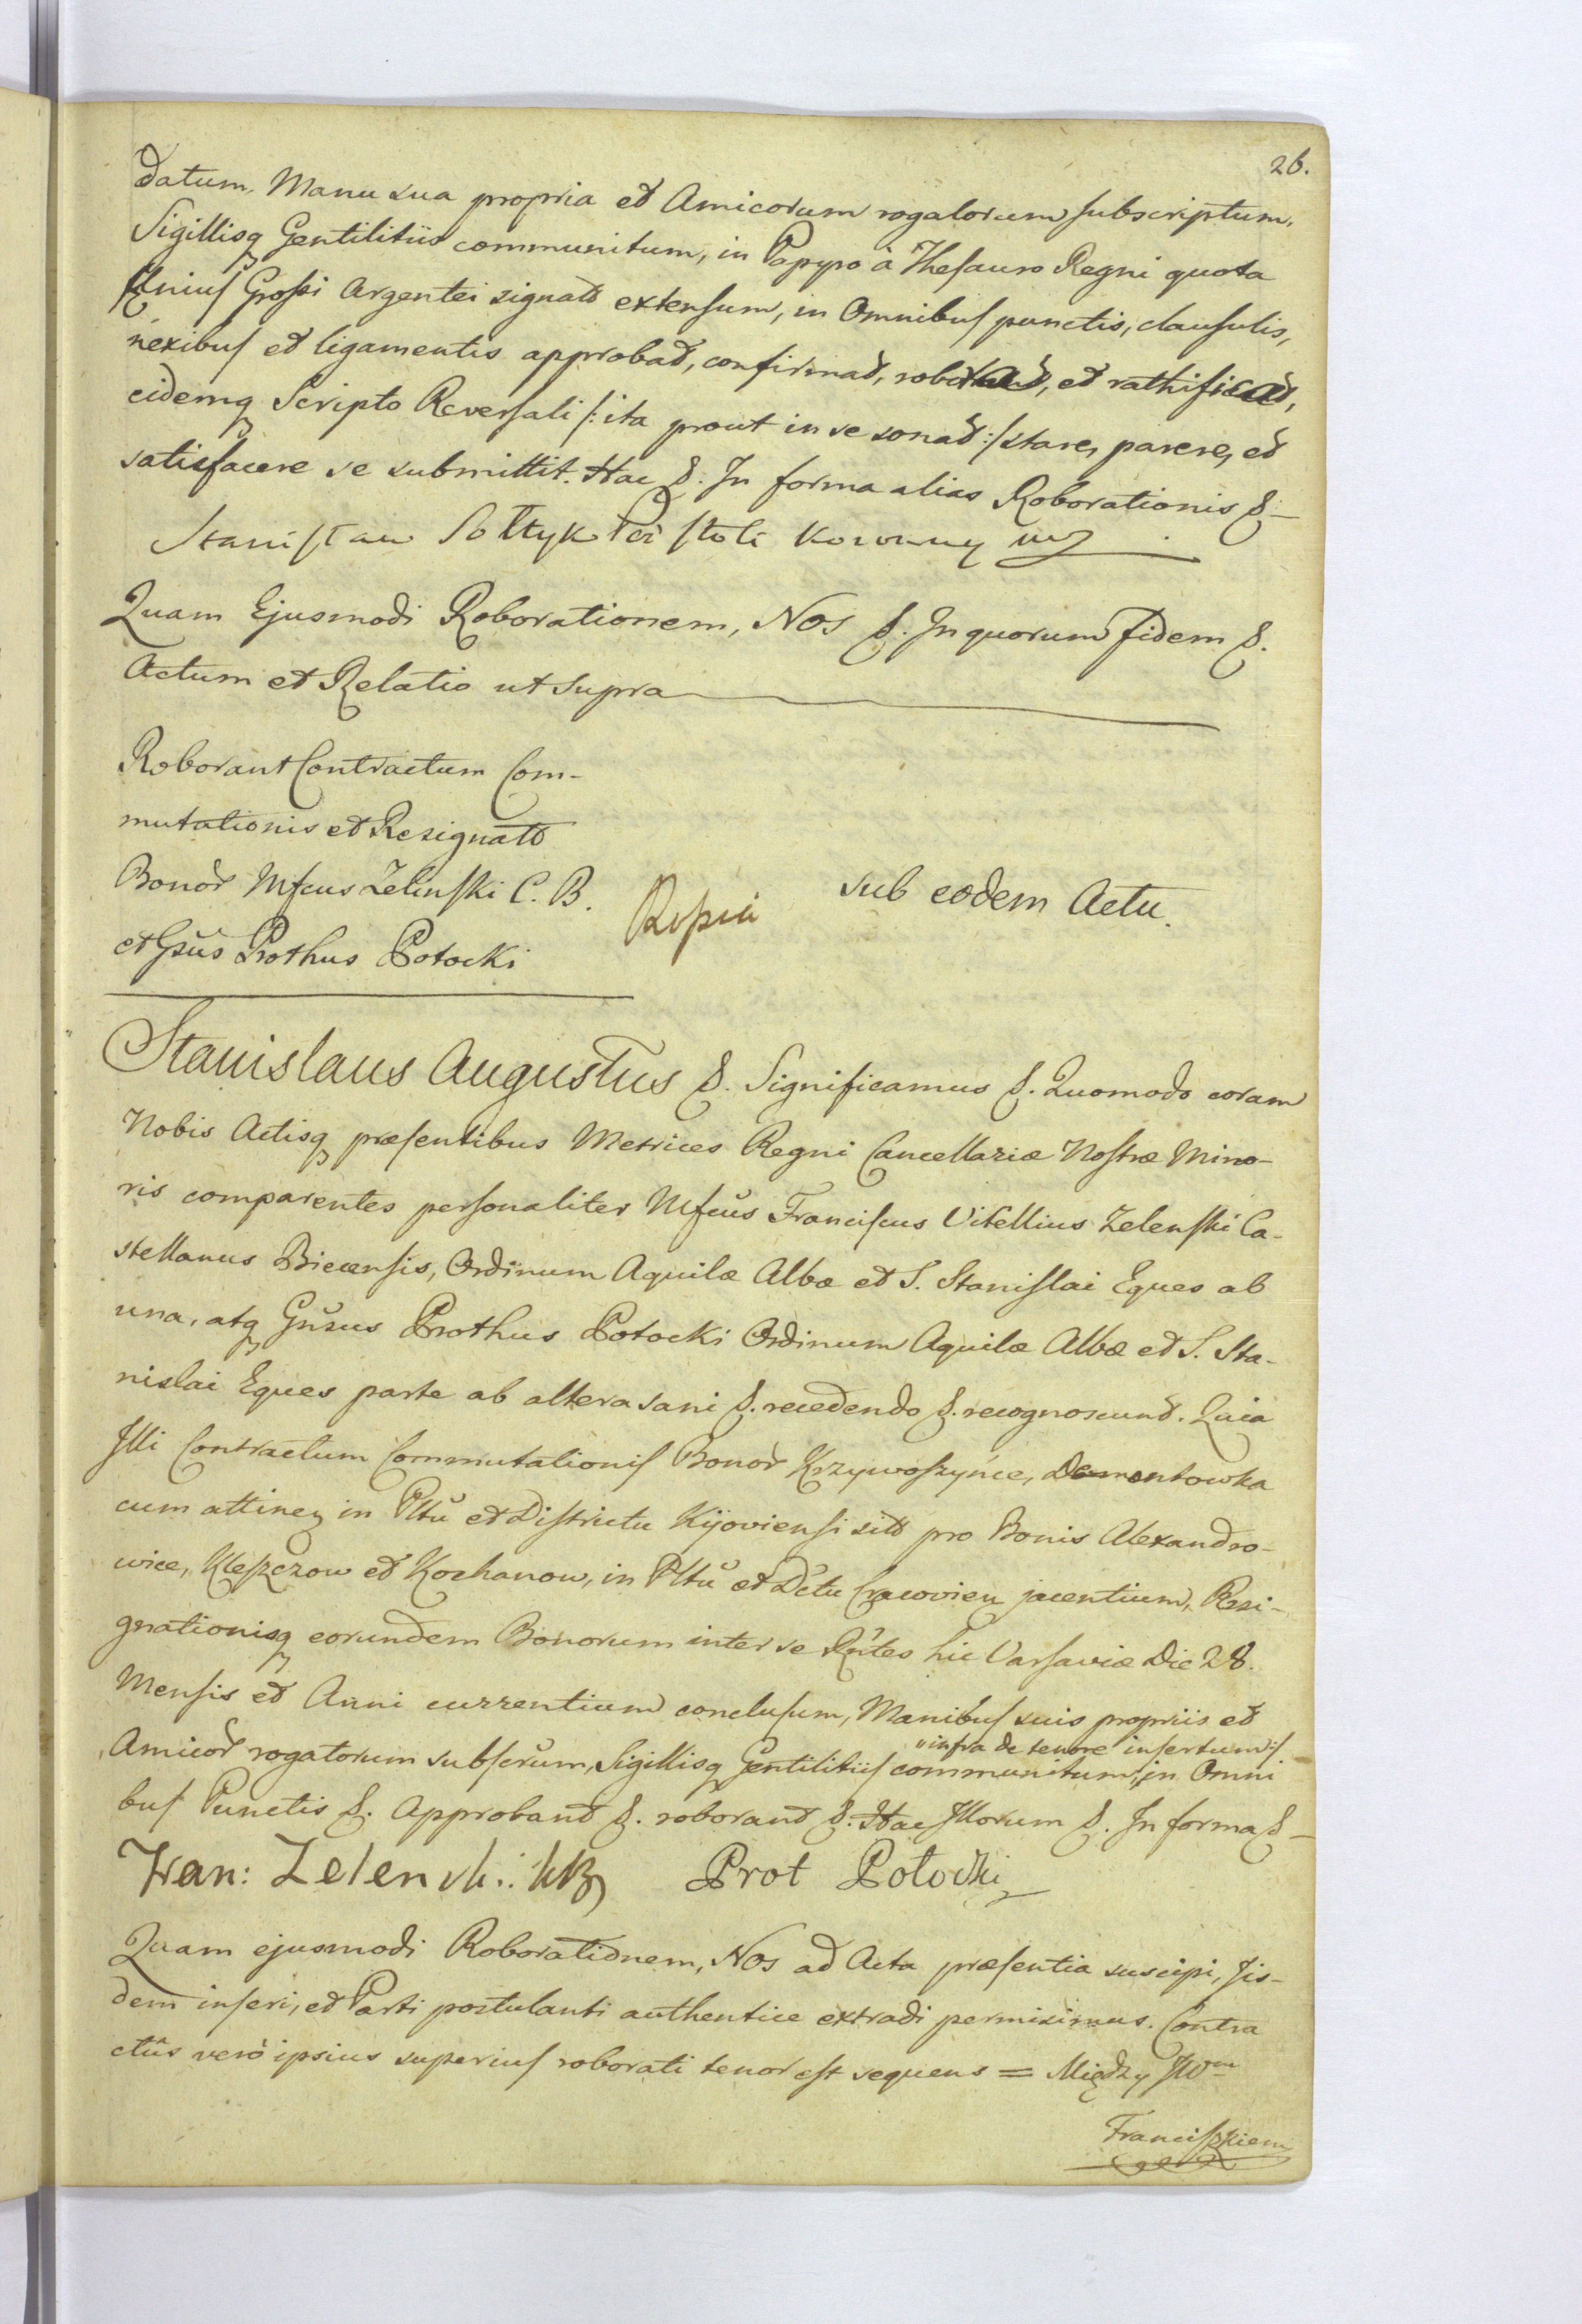 26.
datum. Manu sua propria et Amicorum rogatorum subscriptum,
Sigillisq Gentilitiis communitum, in Papyro à Thesauro Regni quota
Unius Grossi Argentei signato extensum, in Omnibus punctis, clausulis,
nexibus et ligamentis approbat, confirmat, roborat, et rathificat,
eidemq Scripto Reversali /: ita prout in se sonat :/ stare, parere, et
satisfacere se submittit. Hac &. In forma alias Roborationis &
Stanisław Sołtyk Podstoli Koronny mp
Quam Ejusmodi Roborationem, Nos &. In quorum Fidem &.
Actum et Relatio ut Supra
Roborant Contractum Com-
mutationis et Resignato
Bonor Mfcus Zelinski C. B.
et Gsŭs Prothus Potocki
Kopia
sub eodem Actu.
Stanislaus Augustus &. Significamus &. Quomodo coram
Nobis Actisq præsentibus Metrices Regni Cancellariæ Nostræ Mino-
ris comparentes personaliter Mfcŭs Franciscus Vitellius Zelenski Ca-
stellanus Biecensis, Ordinum Aquilæ Albæ et S. Stanislai Eques ab
una, atq Gnŭsus Prothus Potocki Ordinum Aquilæ Albæ et S. Sta-
nislai Eques parte ab altera sani &. recedendo &. recognoscunt. Quia
Illi Contractum Commutationis Bonor Krzywoszyńce, Dementowka
cum attinen in Pltŭ et Districtu Kijoviensi sito pro Bonis Alexandro-
wice, Kleszczow et Kochanow, in Pltŭ et Dctu Cracovien jacentium, Resi-
gnationisq eorundem Bonorum inter se Rntes hic Varsaviæ Die 28.
Mensis et Anni currentium conclusum, Manibus suis propriis et
Amicor rogatorum subscrŭm, Sigillisq Gentilitiis communitum, in Omni
infra de tenore insertum
bus Punctis &. Approbant &. roborant &. Hac Illorum &. In forma &
Fran: Zelenski: KB Prot Potocki
Quam ejusmodi Roborationem, Nos ad Acta præsentia suscipi, Iis-
dem inseri, et Parti postulanti authentice extradi permisimus. Contra
ctûs verò ipsius superius roborati tenor est sequens = Między JWm
Franciszkiem